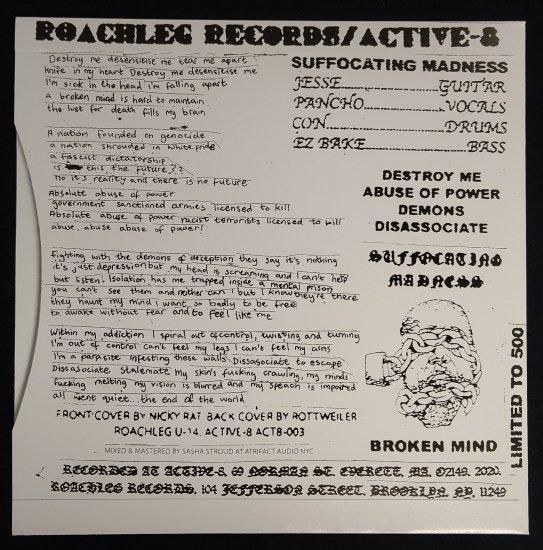 ROACHLEG RECORDS/ACTIVE-8
Destroy me desensitise me tear me apart
Knife in my heart Destroy me desensitise me
I'm sick in the head i'm falling apart
a broken mind is hard to maintain
the lust for death fills my brain
A nation founded on genocide
a nation shrouded in white pride
a fascist dictatorship
is this the future??
No it's reality and there is no future
Absolute abuse of power
government sanctioned armies licensed to kill
Absolute abuse of power racist terrorists licensed to kill
abuse, abuse abuse of power!
Fighting with the demons of deception they say it's nothing
it's just depression but my head is screaming and I can't help
but listen. Isolation has me trapped inside a mental prison
you can't see them and neither can I but I know they're there
they haunt my mind I want so badly to be free
to awake without fear and to feel like me
Within my addiction I spiral out of control, twisting and turning
I'm out of control can't feel my legs I can't feel my arms
I'm a parasite infesting these walls Dissasociate to escape
Dissasociate Stalemate my skin's fucking crawling, my minds
fucking melting my vision is blurred and my speach is impaired
all went quiet... the end of the world
FRONT COVER BY NICKY RAT BACK COVER BY ROTTWEILER
ROACHLEG U-14. ACTIVE-8 ACT8-003
MIXED & MASTERED BY SASHA STROUD AT ATRIFACT AUDIO NYC
SUFFOCATING MADNESS
JESSE....................GUITAR
PANCHO....................VOCALS
CON....................DRUMS
EZ BAKE....................BASS
DESTROY ME
ABUSE OF POWER
DEMONS
DISASSOCIATE
SUFFOCATING
MADNESS
BROKEN MIND
LIMITED TO 500
RECORDED AT ACTIVE-8, 69 NORMAN ST. EVERETT, MA, 02149, 2020.
ROACHLEG RECORDS, 104 JEFFERSON STREET, BROOKLYN, NY, 11249